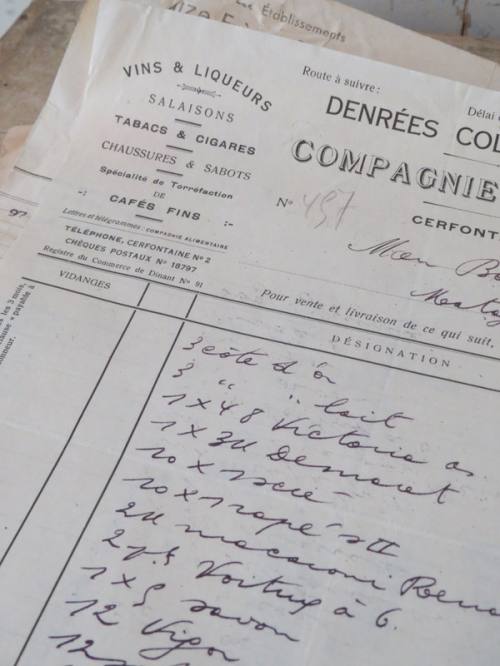 Établissements
VINS & LIQUEURS
SALAISONS
TABACS & CIGARES
CHAUSSURES & SABOTS
Spécialité de Torréfaction
DE
-: CAFÉS FINS :-
Lettres et télégrammes : COMPAGNIE ALIMENTAIRE
TÉLÉPHONE, CERFONTAINE Nº 2
CHÈQUES POSTAUX Nº 18797
Registre du Commerce de Dinant Nº 91
Route à suivre :
Délai
DENRÉES COL
COMPAGNIE
Nº 497
CERFONT
Pour vente et livraison de ce qui suit,
VIDANGES
DÉSIGNATION
3 côte d'or
3 " " lait
1 x 48 Victoria
1 x 2K Demaret
10 x
10 x rapé II
2K macaroni
à 6.
1 x 5 savon
12 Vigor
12
97.
les 3 mois,
payable à